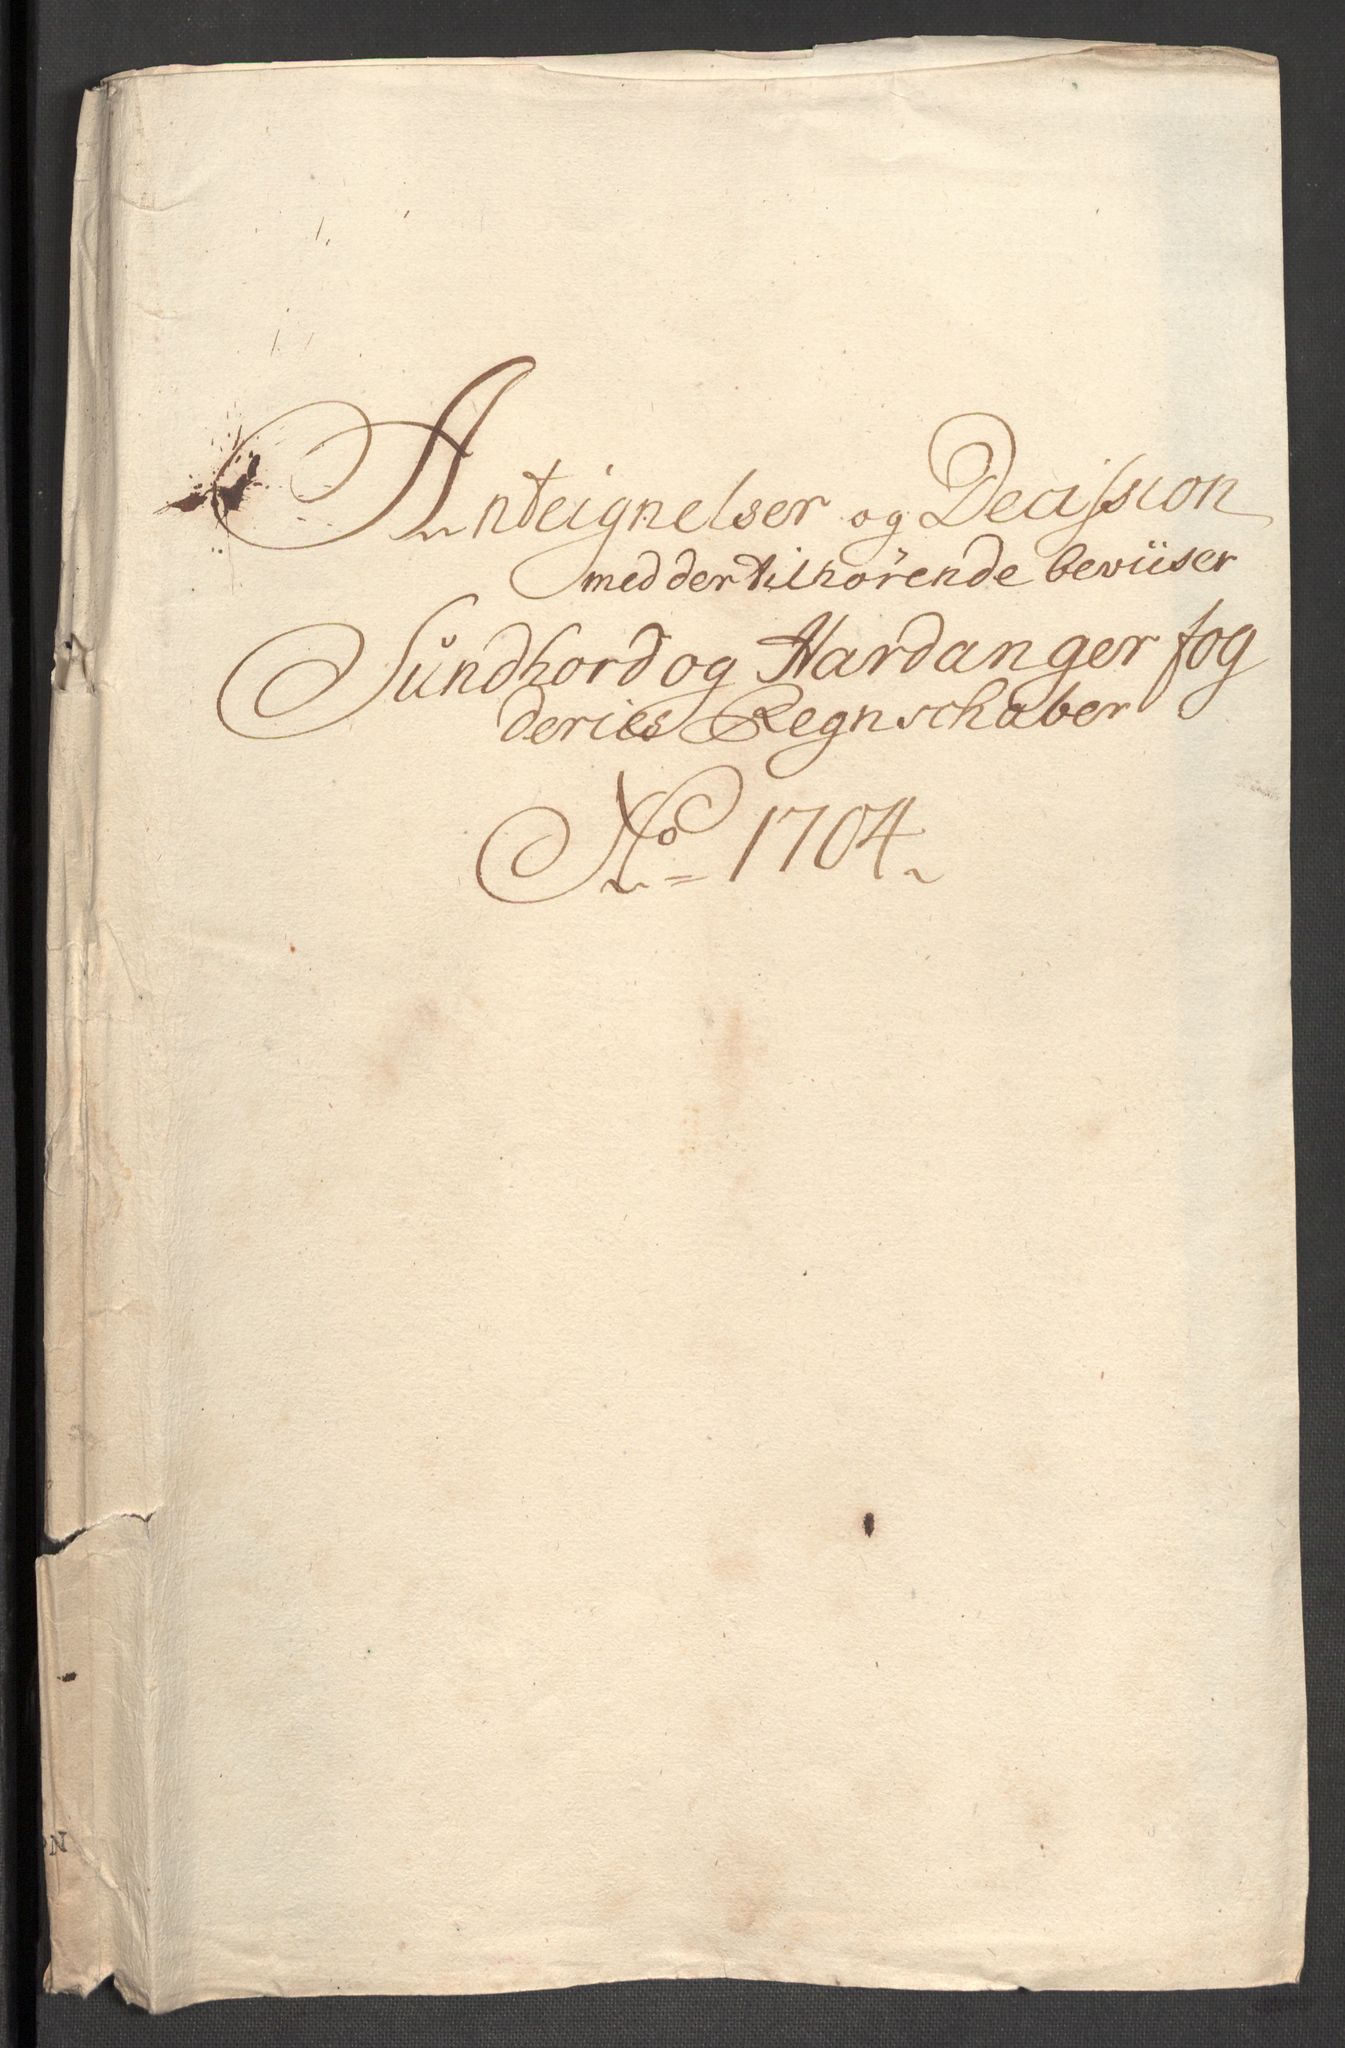 Anteignelser og Decission
med dertilhörende bewiiser
Sundhord og Hardanger fog
deries Regnschaber
No = 1704